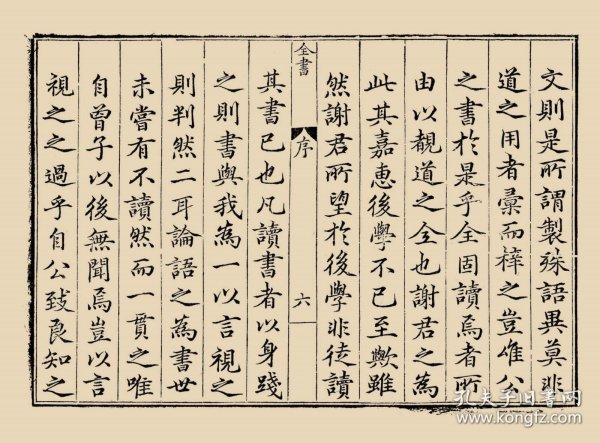 文則是所謂製殊語異莫非
道之用者彙而梓之豈惟公
之書於是乎全固讀焉者所
由以覩道之全也謝君之為
此其嘉惠後學不已至歟雖
然謝君所望於後學非徒讀
全書
序
六
其書已也凡讀書者以身踐
之則書與我為一以言視之
則判然二耳論語之為書世
未嘗有不讀然而一貫之唯
自曾子以後無聞焉豈以言
視之之過乎自公致良知之
孔夫子旧书网